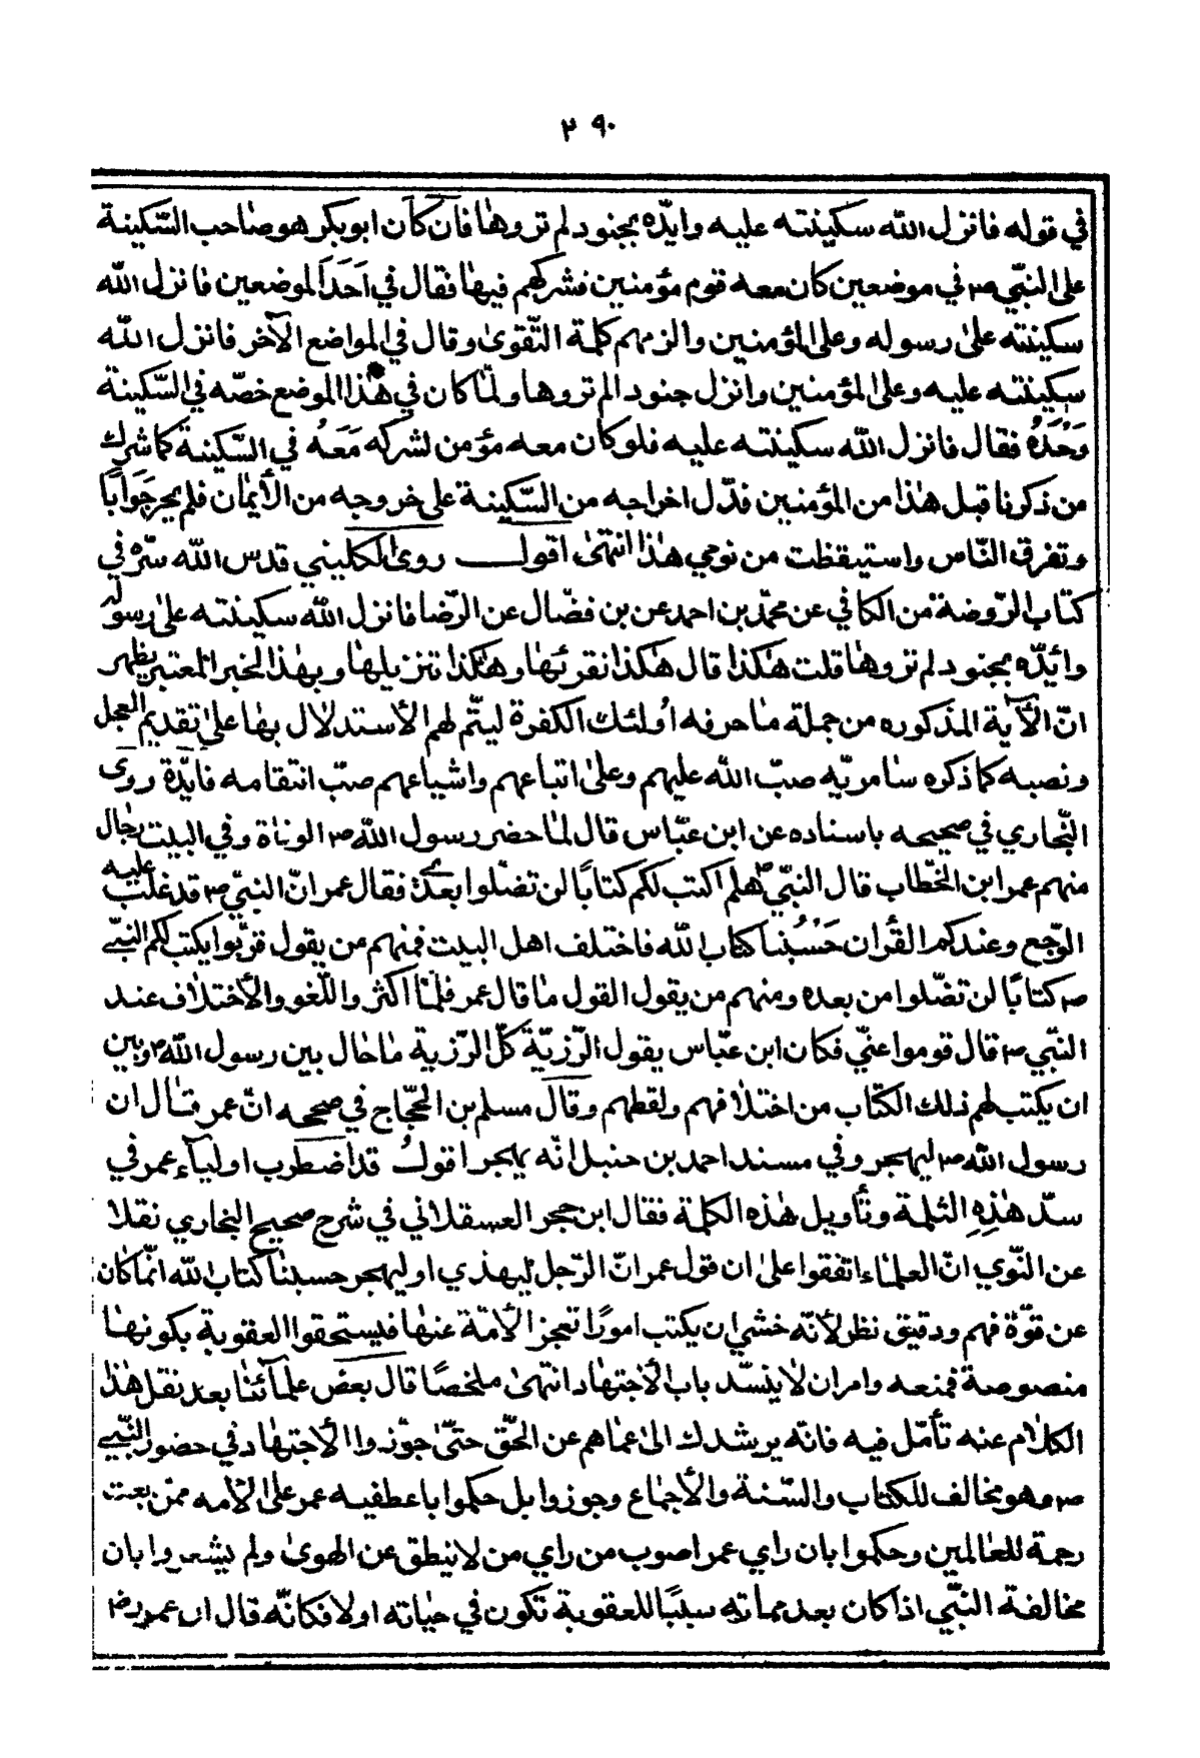 ٢٩٠
في قوله فانزل الله سكينته عليه وايّده بجنود لم تروها فان كان ابوبكر هو صاحب السّكينة
على النبّي ص في موضعين كان معه قوم مؤمنين فشركهم فيها فقال في اَحَدَ الموضعين فانزل الله
سكينته على رسوله وعلى المؤمنين والزمهم كلمة التّقوى وقال في المواضع الآخر فانزل الله
سكينته عليه وعلى المؤمنين وانزل جنودا لم تروها ولمّا كان في هذا الموضع خصّه في السّكينة
وَحْدَهُ فقال فانزل الله سكينته عليه فلو كان معه مؤمن لشركه مَعَهُ في السّكينة كما شرك
من ذكرنا قبل هذا من المؤمنين فدّل اخراجه من السّكينة على خروجه من الأيمان فلم يحرجَوابًا
وتفرق النّاس واستيقظت من نومي هذا انتهى اقول روى الكليني قدس الله سرّه في
كتاب الرّوضة من الكافي عن محمّد بن احمد عن بن فضّال عن الرّضا فانزل الله سكينته على رسوله
وايّده بجنود لم تروها قلت هكذا قال هكذا نقرئها وهكذا تنزيلها وبهذا الخبر المعتبر يظهر
انّ الآية المذكوره من جملة ما حرفه اولئك الكفرة ليتّم لهم الأستدلال بها على تقديم العجل
ونصبه كما ذكره سامريّه صبّ الله عليهم وعلى اتباعهم واشياعهم صبّ انتقامه فايدّة روى
البّخاري في صحيحه باسناده عن ابن عبّاس قال لمّا حضر رسول الله ص الوفاة وفي البيت رجال
منهم عمر ابن الخّطاب قال النبّي ص هلم اكتب لكم كتابًا لن تضلّوا بعده فقال عمر انّ النبيّ ص قد غلب عليه
الوّجع وعندكم القرأن حَسْبُنا كتاب الله فاختلف اهل البيت فمنهم من يقول قرّبوا يكتب لكم النبّي
ص كتابًا لن تضّلوا من بعده ومنهم من يقول القول ما قال عمر فلمّا اكثروا اللّغو والأختلاف عند
النبّي ص قال قوموا عنّي فكان ابن عبّاس يقول الرّزيّة كلّ الرّزية ما حال بين رسول الله ص وبين
ان يكتب لهم ذلك الكتّاب من اختلافهم ولقطهم وقال مسلم بن الحجّاج في صحيحه انّ عمر قال ان
رسول الله ص ليهجر وفي مسند احمد بن حنبل انّه يهجر اقول قد اضطرب اولياء عمر في
سدّ هذِهِ الثلمة وتأويل هذه الكلمة فقال ابن حجر العسقلاني في شرح صحيح البخاري نقلا
عن النّوي انّ العلماء اتفقوا على ان قول عمر انّ الرّجل ليهذي او ليهجر حسبنا كتاب الله انّما كان
عن قوّة فهم ودقيق نظر لأنّه خشي ان يكتب امورًا تعجز الأمّة عنها فيستحقوا العقوبة بكونها
منصوصة فمنعه وامر ان لا ينسّد باب الأجتهاد انتهى ملخصًا قال بعض علمآئنا بعد نقل هذا
الكلام عنه تأمّل فيه فانّه يرشدك الى عماهم عن الحّق حتّى جوّزوا الأجتهاد في حضور النّبي
ص وهو مخالف للكتاب والسّنة والأجماع وجوزوا بل حكموا باعطفيه عمر على الأمه ممّن بعث
رحمة للعالمين وحكموا بان راي عمر اصوب من راي من لا ينطق عن الهوى ولم يشعروا بان
مخالفة النبّي اذا كان بعد مماته سببًا للعقوبة تكون في حياته اولا فكانّه قال ان عمر رض